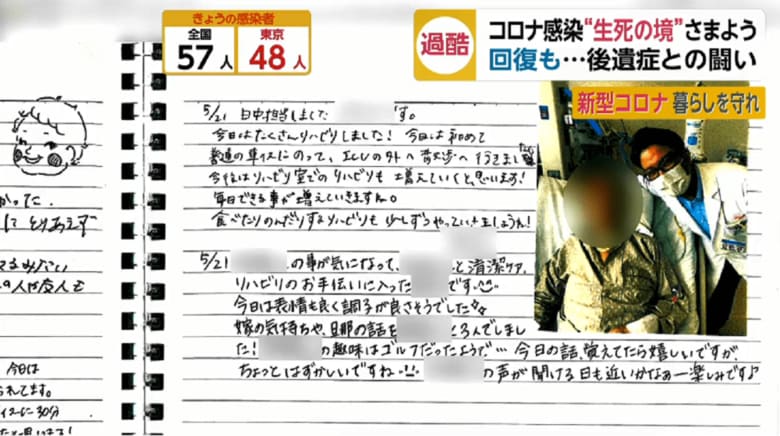 きょうの感染者
全国
57人
東京
48人
過酷
コロナ感染“生死の境”さまよう
回復も…後遺症との闘い
新型コロナ 暮らしを守れ
5/21 日中担当しました す。
今日はたくさんリハビリしました! 今日は初めて
普通の車イスにのって、ICUの外へ散歩へ行きました
今後はリハビリ室でのリハビリも増えていくと思います!
毎日できる事が増えていきますね。
食べたりのんだりするリハビリも少しずつやっていきましょうね!
5/21 の事が気になって、 と清潔ケア、
リハビリのお手伝いに入った です
今日は表情も良く調子が良さそうでした
嫁の気持ちや、旦那の話を くろんでしまし
た! の趣味はゴルフだったようで… 今日の話、覚えてたら嬉しいですが、
ちょっとはずかしいですね の声が聞ける日も近いかなぁー楽しみです♪
かった。
にとりあえず
の人が友人と
今日は
られてます。